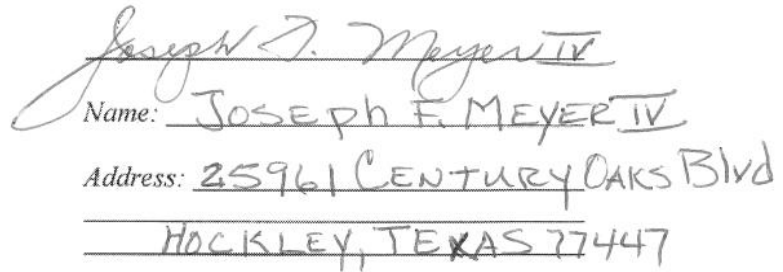 Joseph F. Meyer IV
Name: JOSEPh F. MEYER IV
Address: 25961 CENTURY OAKS Blvd
HOCKLEY, TEXAS 77447